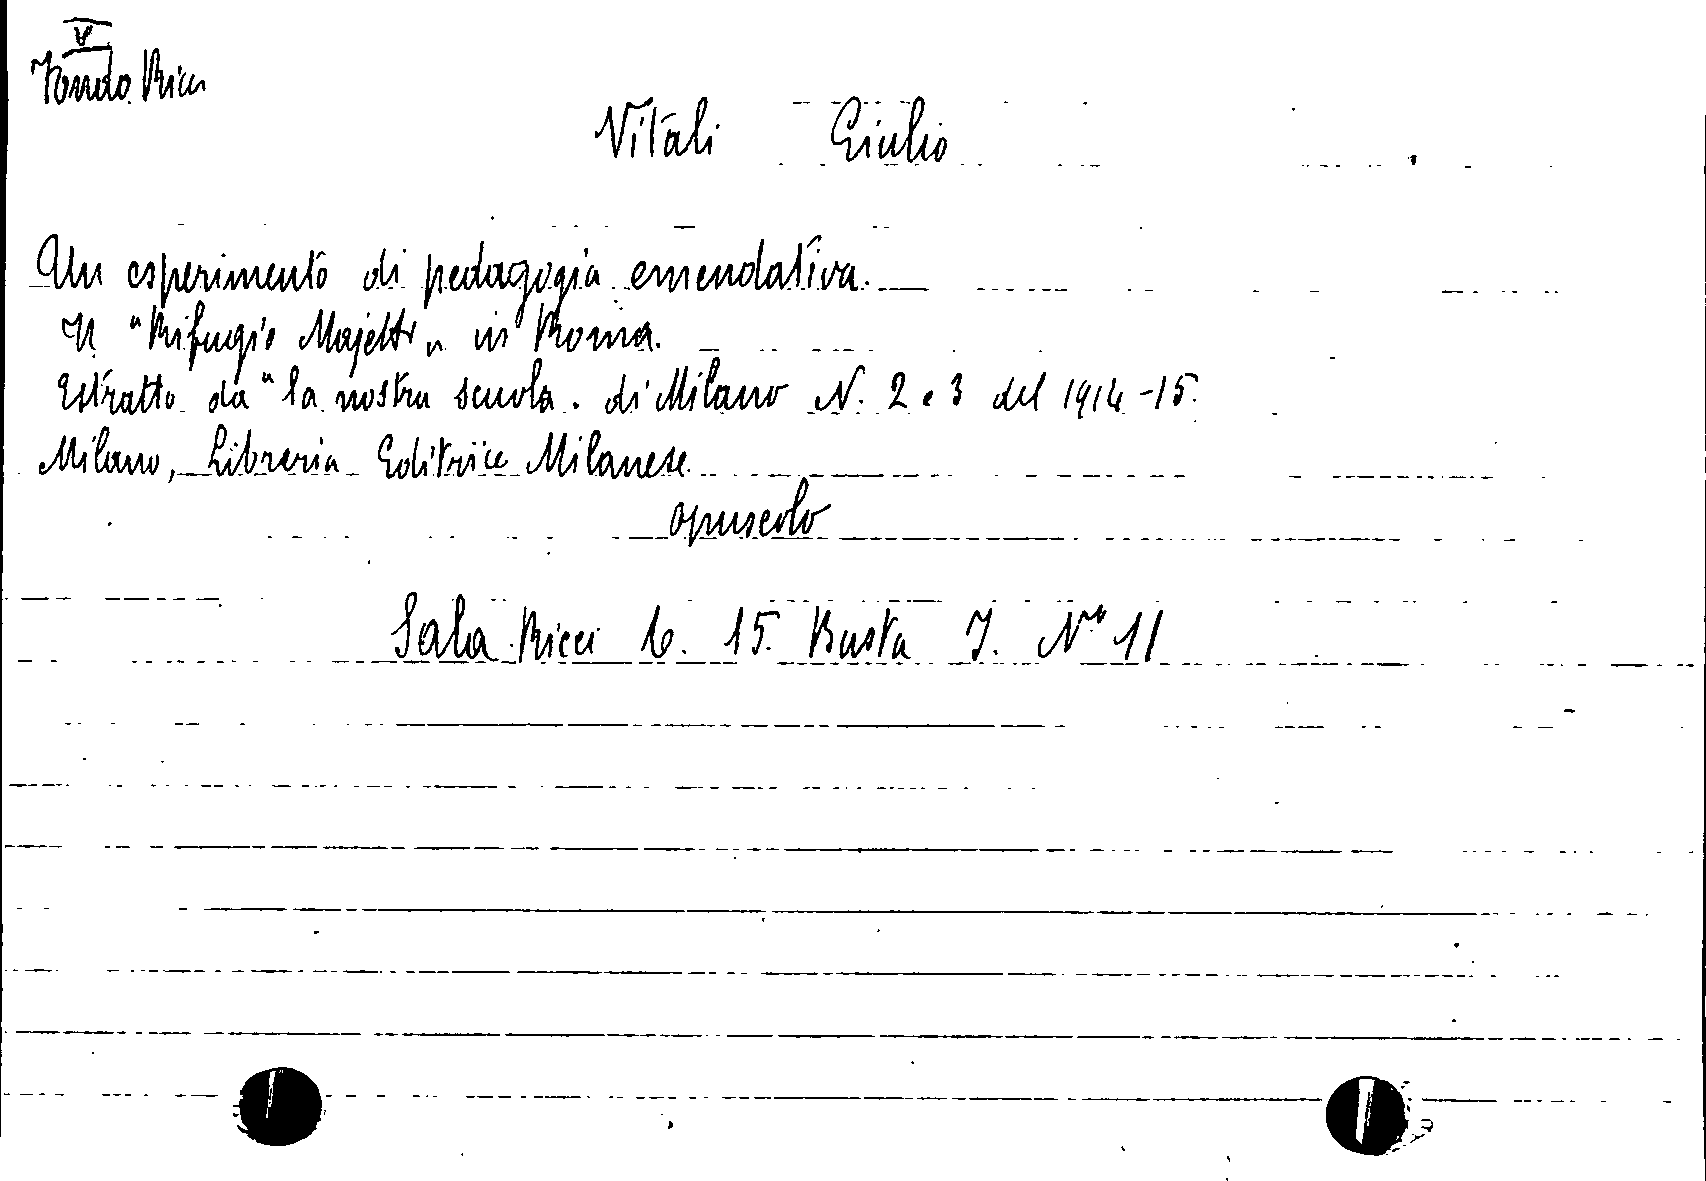 V
Fondo Ricci
Vitali Giulio
Un esperimento di pedagogia emendativa.
Il "Rifugio Majetti" in Roma.
Estratto da "la nostra scuola. di Milano N. 2 e 3 del 1914-15.
Milano, Libreria Editrice Milanese
opuscolo
Sala Ricci 6. 15. Busta I. N° 11